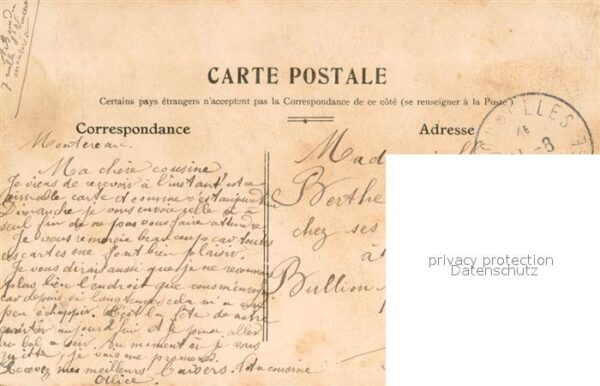 CARTE POSTALE
Certains pays étrangers n'acceptent pas la Correspondance de ce côté (se renseigner à la Poste)
Correspondance
Adresse
Montereau.
Ma chère cousine
Je viens de recevoir à l'instant votre
aimable carte et comme c'est aujourd'hui
Dimanche je vous envoie celle ci à
seul fin de ne pas vous faire attendre
Je vous remercie beaucoup car toutes
ces cartes me font bien plaisir.
Je vous dirai aussi que je ne reconnais
plus bien l'endroit que vous m'envoyez
car depuis si longtemps cela m'a
peu échapper. C'est la fête de notre
quartier aujourd'hui et je pense aller
au bal ce soir. Au moment où je vous
quitte, je vais me promener.
Recevez mes meilleurs baisers. Votre cousine
Alice.
Mad
Berthe
chez ses
à
Bullion
ELLES
privacy protection
Datenschutz